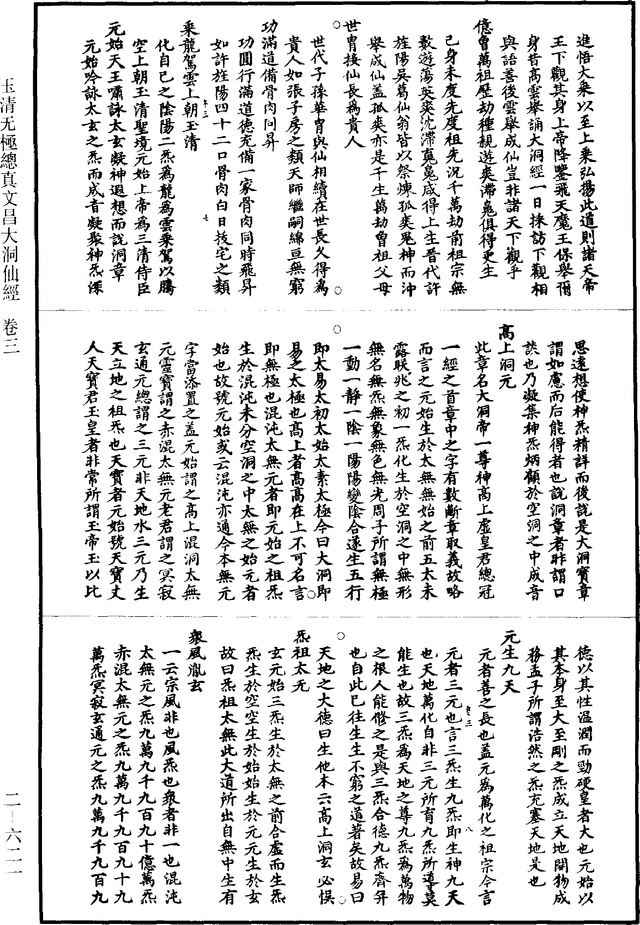 進悟大乘以至上乘弘揚此道則諸天帝
王下觀其身上帝降鑒飛天魔王保舉爾
身昔高雲舉誦大洞經一日採訪下觀相
與語善後雲舉成仙豈非諸天下觀乎
億曾萬祖歷劫種親遊爽滯魂俱得更生
己身未度先度祖先況千萬劫前祖宗無
數遊蕩英爽沈滯冤魂咸得上生晉代許
旌陽吳葛仙翁皆以祭煉孤爽鬼神而沖
舉成仙蓋孤爽亦是千生萬劫曾祖父母
世冑接仙長為貴人
世代子孫華冑與仙相續在世長久得為
貴人如張子房之類天師繼嗣綿亘無窮
功滿道備骨肉同昇
功圓行滿道德充備一家骨肉同時飛昇
如許旌陽四十二口骨肉白日拔宅之類
乘龍駕雲上朝玉清
化自己之陰陽二炁為龍為雲乘駕以騰
空上朝玉清聖境元始上帝為三清侍臣
元始天王嘯詠太玄凝神遐想而說洞章
元始吟詠太玄之炁而成音凝聚神炁深
思遠想使神炁精詳而後說是大洞寶章
謂如慮而后能得者也說洞章者非謂口
談也乃凝集神炁炳顧於空洞之中成音
高上洞元
此章名大洞帝一尊神高上虛皇君總冠
一經之首章中之字有數斷章取義故略
而言之元始生於太無無始之前五太未
露朕兆之初一炁化生於空洞之中無形
無名無炁無象無色無光周子所謂無極
一動一靜一陰一陽陽變陰合遂生五行
即太易太初太始太素太極今曰大洞即
易之太極也高上者高高在上不可名言
即無極也混沌太無元者即元始之祖炁
生於混沌未分空洞之中太無之始元者
始也故號元始或云混沌亦通今本無元
字當添置之蓋元始謂之高上混洞太無
元靈寶謂之赤混太無元老君謂之冥寂
玄通元總謂之三元非天地水三元乃生
天立地之祖炁也天寶者元始號天寶丈
人天寶君玉皇者非常所謂玉帝玉以比
德以其性溫潤而勁硬皇者大也元始以
其本身至大至剛之炁成立天地開物成
務孟子所謂浩然之炁充塞天地是也
元生九天
元者善之長也蓋元為萬化之祖宗今言
元者三元也言三炁生九炁即生神九天
也天地萬化自非三元所育九炁所導莫
能生也故三炁為天地之尊九炁為萬物
之根人能修之是與三炁合德九炁齊并
也自此已往生生不窮之道著矣故易曰
天地之大德曰生他本云高上洞玄必悮
炁祖太无
玄元始三炁生於太無之前合虛而生炁
炁生於空空生於始始生於元元生於玄
故曰炁祖太無此大道所出自無中生有
衆風胤玄
一云宗風非也風炁也衆者非一也混沌
太無元之炁九萬九千九百九十億萬炁
赤混太無元之炁九萬九千九百九十九
萬炁冥寂玄通元之炁九萬九千九百九
玉清无極總真文昌大洞仙經 卷三
二－六二一